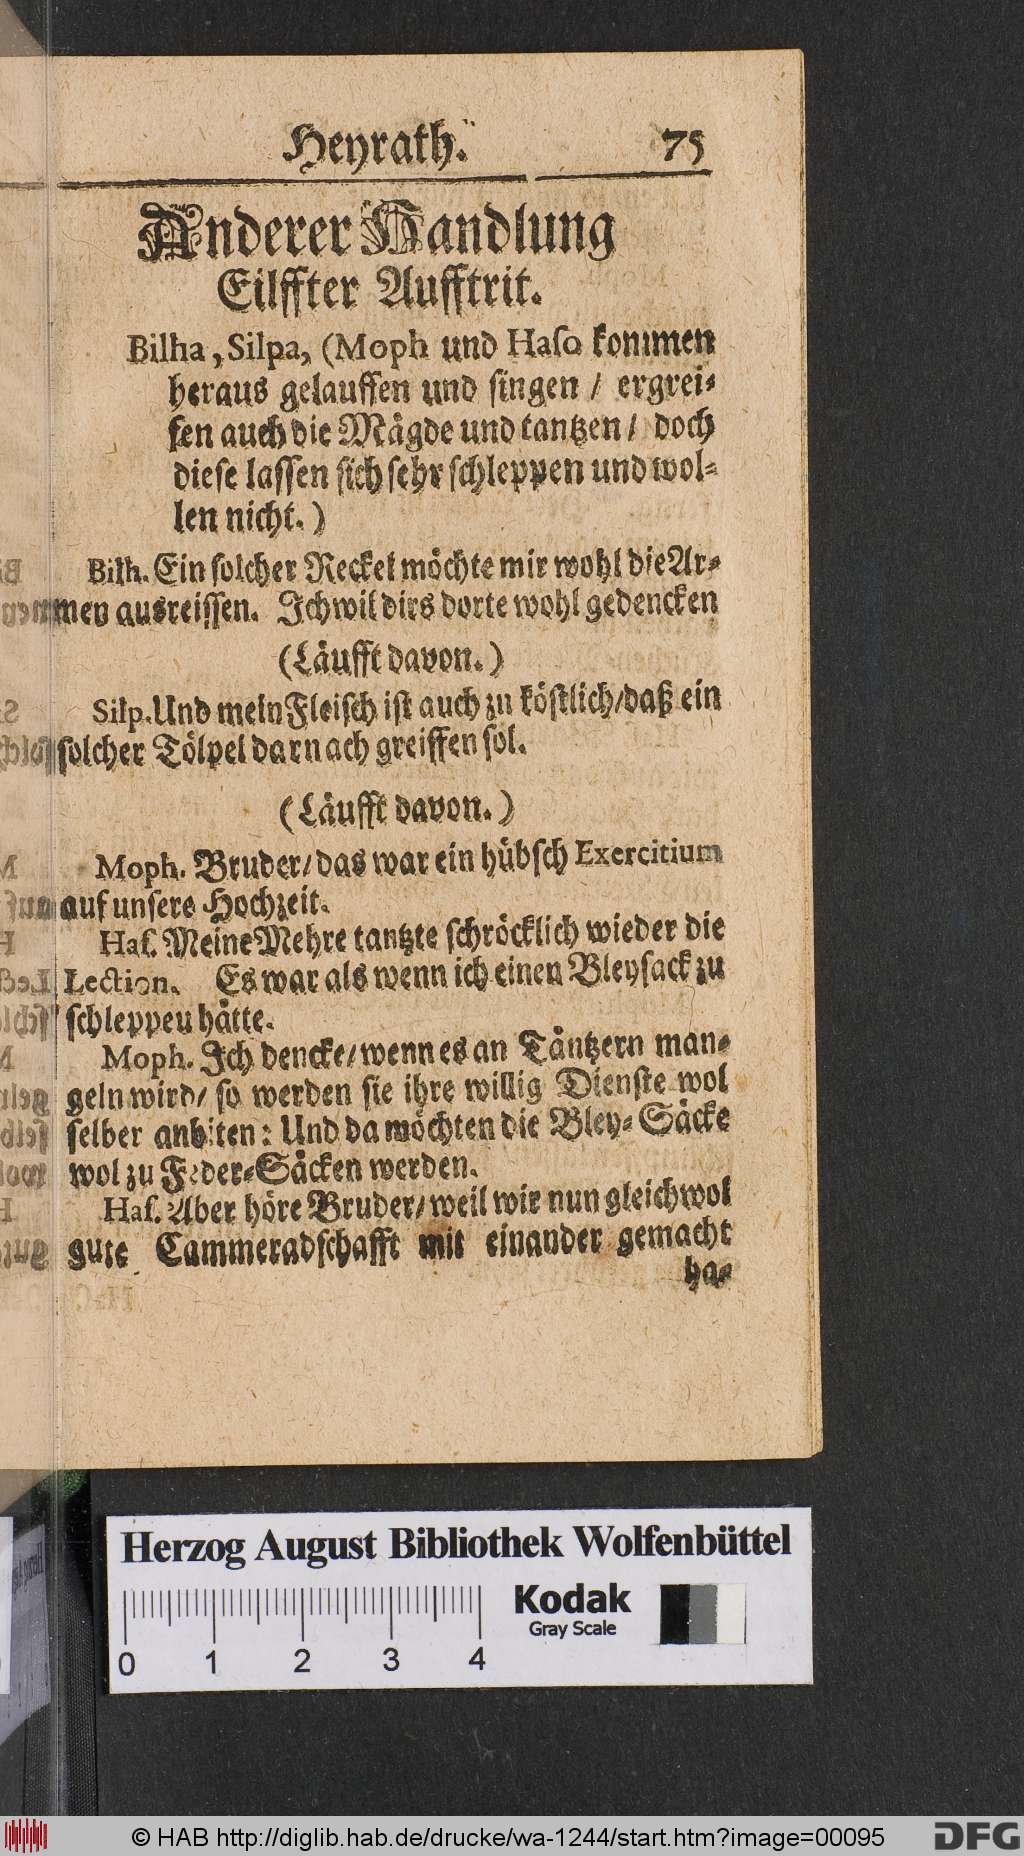 Heyrath. 75
Anderer Handlung
Eilffter Aufftrit.
Bilha, Silpa, (Moph und Haso kommen
heraus gelauffen und singen / ergrei-
fen auch die Mägde und tantzen / doch
diese lassen sich sehr schleppen und wol-
len nicht.)
Bilh. Ein solcher Reckel möchte mir wohl die Ar-
men ausreissen. Ich wil dirs dorte wohl gedencken
(Läufft davon.)
Silp. Und mein Fleisch ist auch zu köstlich / daß ein
solcher Tölpel darnach greiffen sol.
(Läufft davon.)
Moph. Bruder / das war ein hübsch Exercitium
auf unsere Hochzeit.
Has. Meine Mehre tantzte schröcklich wieder die
Lection. Es war als wenn ich einen Bleysack zu
schleppen hätte.
Moph. Ich dencke / wenn es an Täntzern man-
geln wird / so werden sie ihre willig Dienste wol
selber anbiten: Und da möchten die Bley-Säcke
wol zu Feder-Säcken werden.
Has. Aber höre Bruder / weil wir nun gleichwol
gute Cammeradschafft mit einander gemacht
ha-
Herzog August Bibliothek Wolfenbüttel
Kodak
Gray Scale
0 1 2 3 4
© HAB http://diglib.hab.de/drucke/wa-1244/start.htm?image=00095
DFG